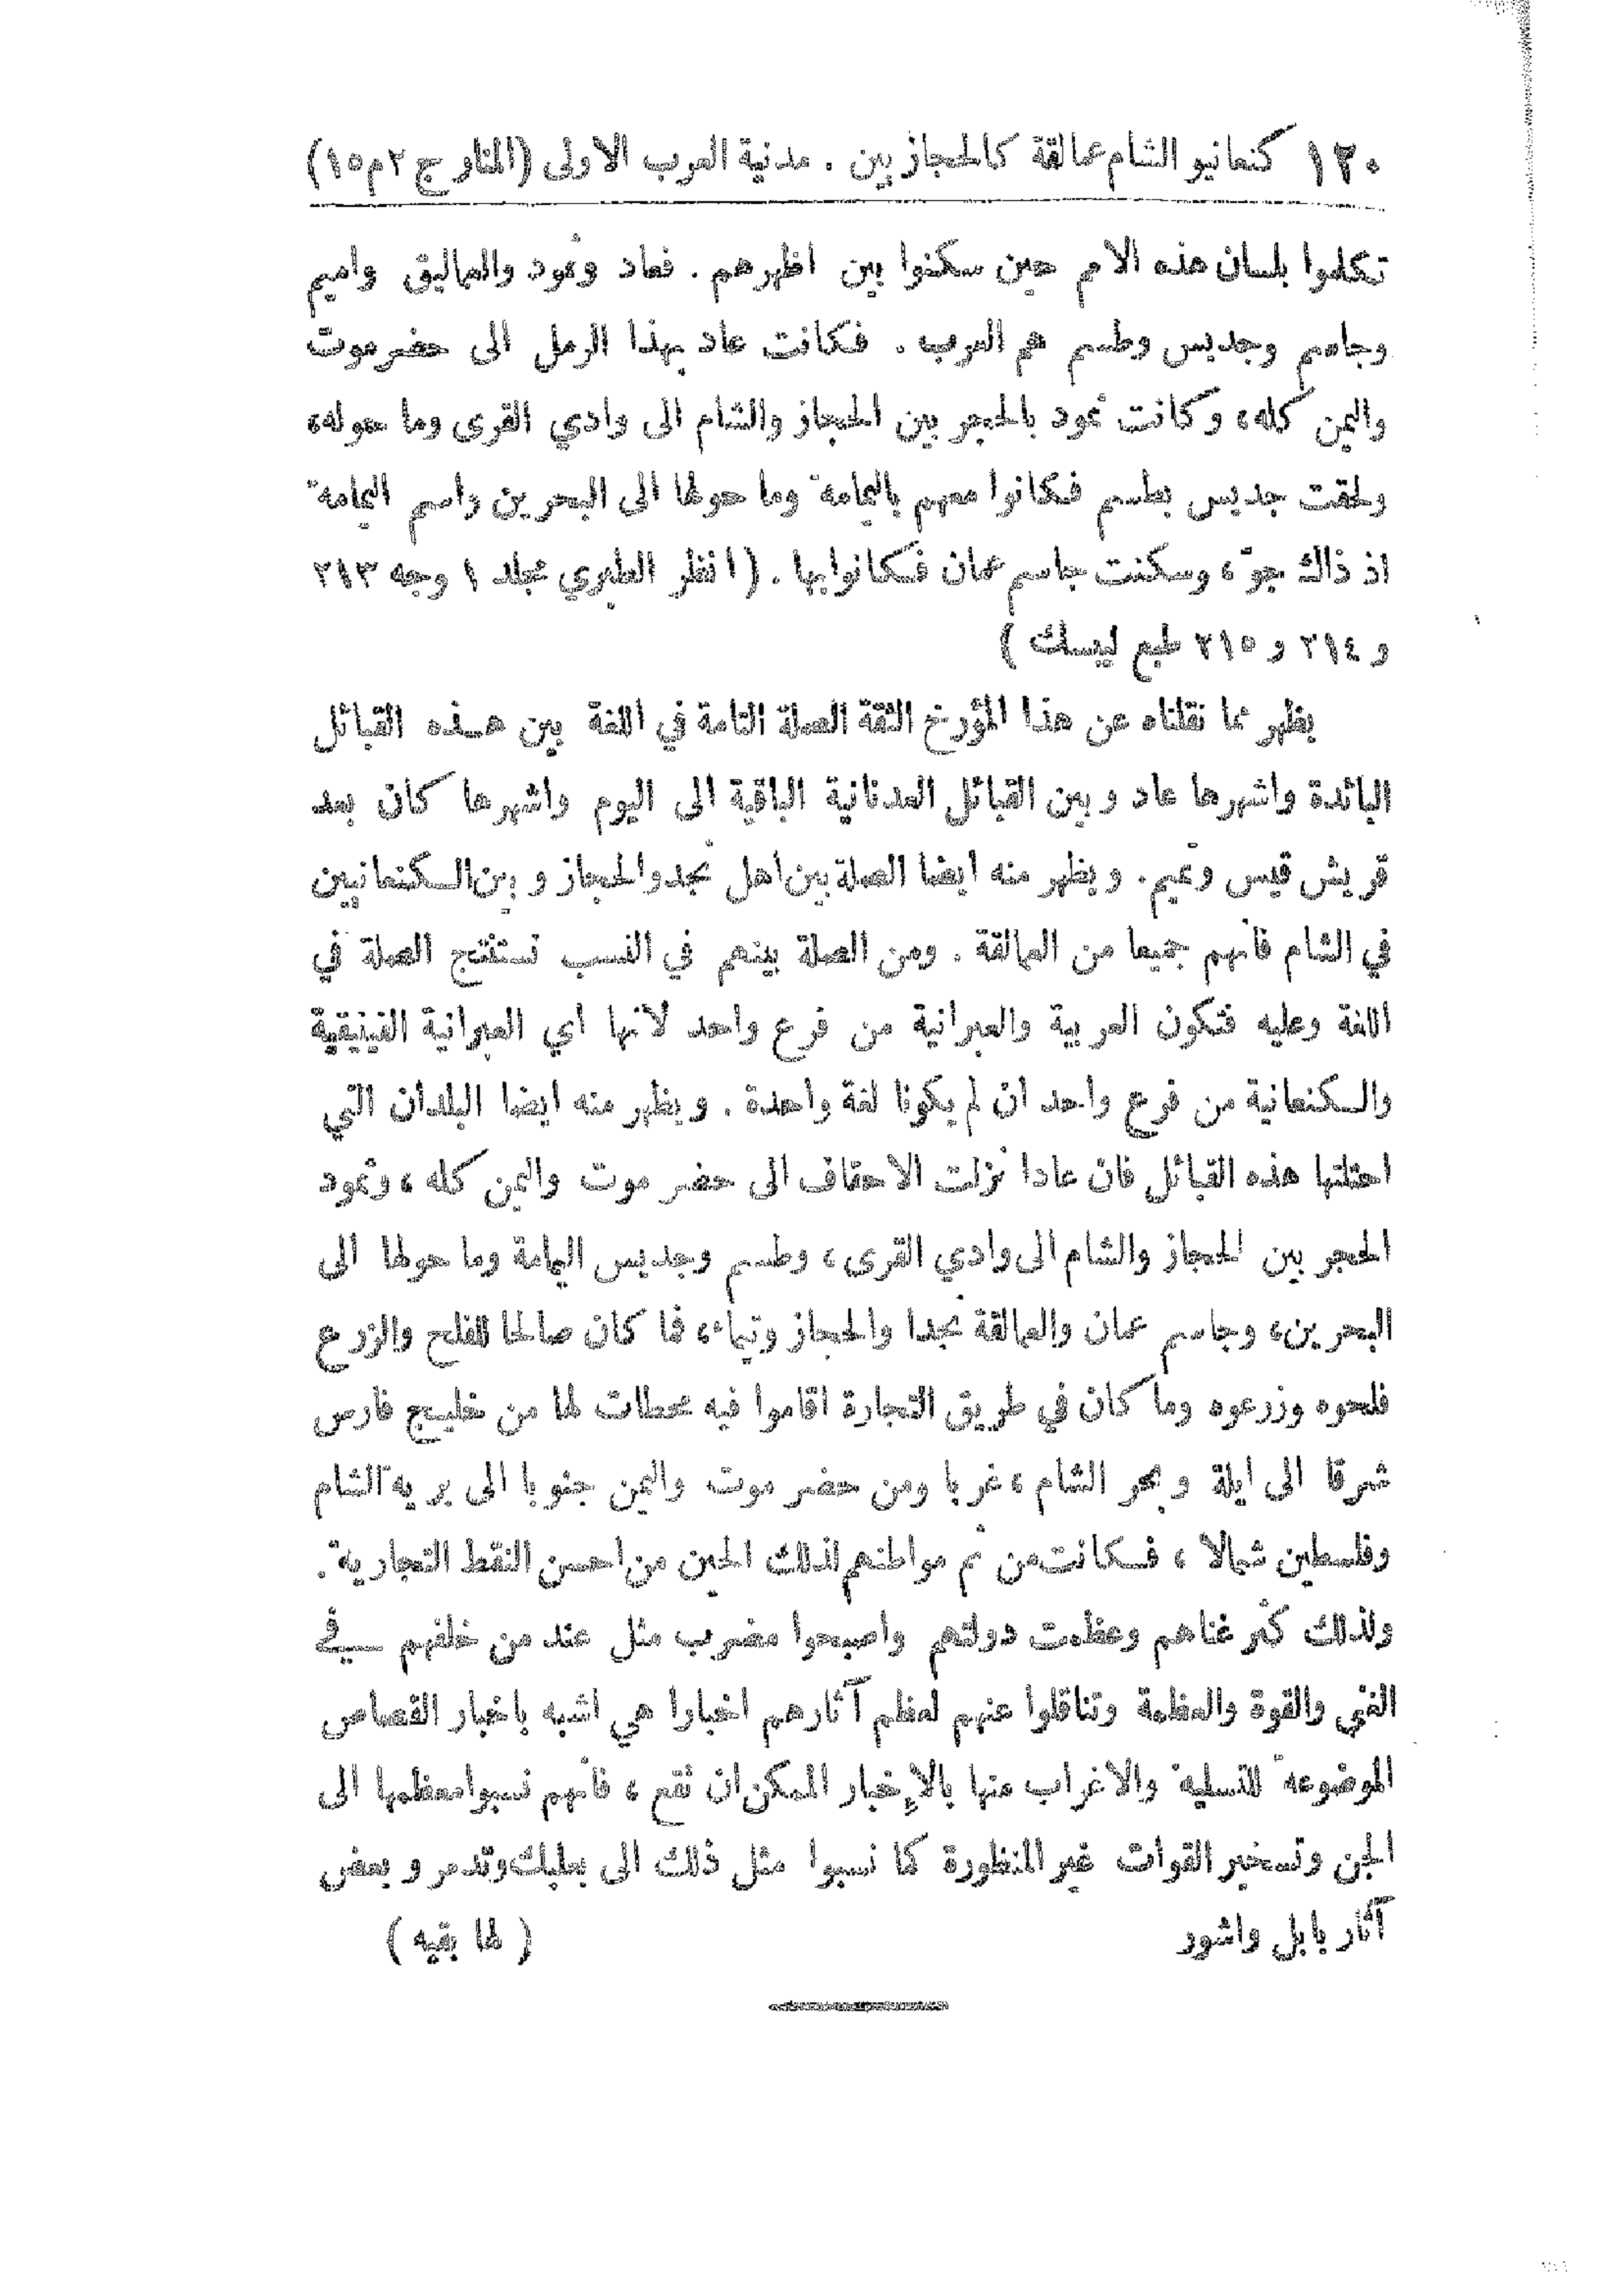 ١٣٠ كنعانيو الشام عمالقة كالحجازيين . مدنية العرب الاولى (المنار ج ٢ م ١٥)
تكلموا بلسان هذه الامم حين سكنوا بين اظهرهم . فعاد وثمود والعماليق واميم
وجاسم وجديس وطسم هم العرب . فكانت عاد بهذا الرمل الى حضرموت
واليمن كله، وكانت ثمود بالحجر بين الحجاز والشام الى وادي القرى وما حوله،
ولحقت جديس بطسم فكانوا معهم باليمامة وما حولها الى البحرين واسم اليمامة
اذ ذاك جوّ، وسكنت جاسم عمان فكانوا بها . (انظر الطبري مجلد ١ وجه ٢١٣
و ٢١٤ و ٢١٥ طبع ليبسك )
يظهر مما نقلناه عن هذا المؤرخ الثقة الصلة التامة في اللغة بين هذه القبائل
البائدة واشهرها عاد وبين القبائل العدنانية الباقية الى اليوم واشهرها كان بعد
قريش قيس وتميم. ويظهر منه ايضا الصلة بين اهل نجد والحجاز وبين الكنعانيين
في الشام فانهم جميعا من العمالقة . ومن الصلة بينهم في النسب تستنتج الصلة في
اللغة وعليه فتكون العربية والعبرانية من فرع واحد لانها اي العبرانية الفينيقية
والكنعانية من فرع واحد ان لم يكونا لغة واحدة . ويظهر منه ايضا البلدان التي
احتلتها هذه القبائل فان عادا نزلت الاحقاف الى حضر موت واليمن كله ، وثمود
الحجر بين الحجاز والشام الى وادي القرى، وطسم وجديس اليمامة وما حولها الى
البحرين، وجاسم عمان والعمالقة نجدا والحجاز وتيماء، فما كان صالحا للفلح والزرع
فلحوه وزرعوه وما كان في طريق التجارة اقاموا فيه محطات لها من خليج فارس
شرقا الى ايلة وبحر الشام ، غربا ومن حضر موت واليمن جنوبا الى برية الشام
وفلسطين شمالا ، فكانت من ثم مواطنهم لذلك الحين من احسن النقط التجارية .
ولذلك كثر غناهم وعظمت دولتهم واصبحوا مضرب مثل عند من خلفهم في
الغنى والقوة والعظمة وتناقلوا عنهم لعظم آثارهم اخبارا هي اشبه باخبار القصاص
الموضوعة للتسلية والاغراب منها بالإخبار الممكن ان تقع ، فانهم نسبوا معظمها الى
الجن وتسخير القوات غير المنظورة كما نسبوا مثل ذلك الى بعلبك وتدمر وبعض
آثار بابل واشور ( لها بقيه )